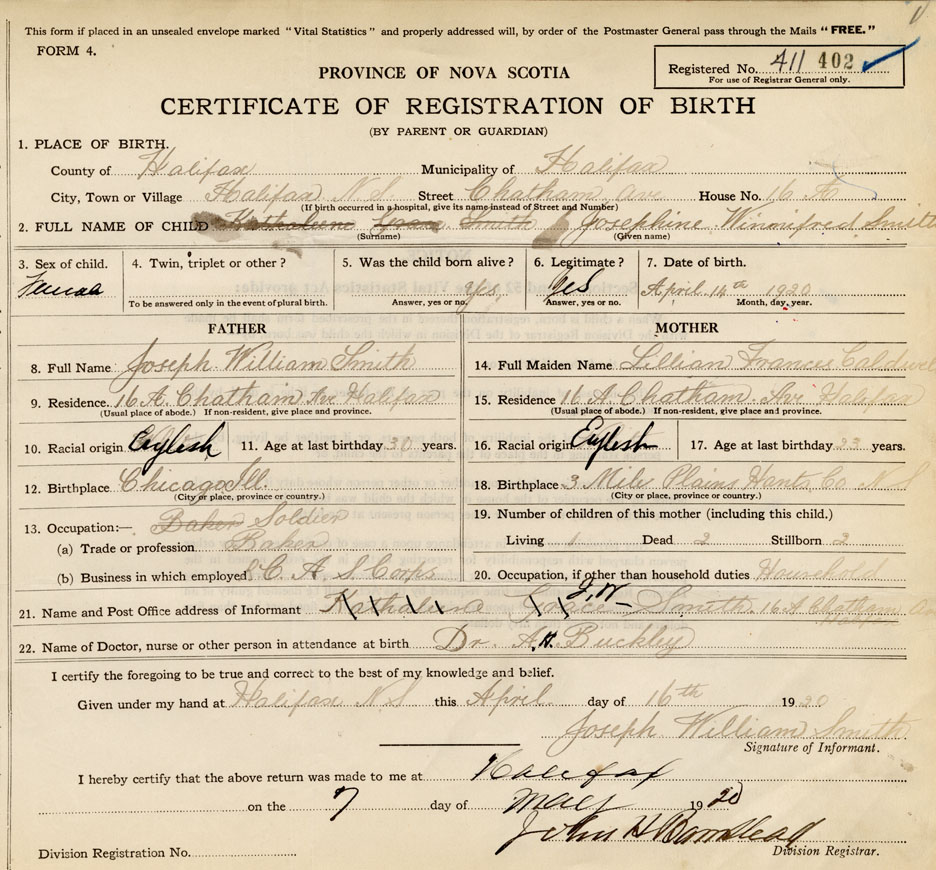 This form if placed in an unsealed envelope marked "Vital Statistics" and properly addressed will, by order of the Postmaster General pass through the Mails "FREE."
FORM 4.
Registered No. 411 402
For use of Registrar General only.
PROVINCE OF NOVA SCOTIA
CERTIFICATE OF REGISTRATION OF BIRTH
(BY PARENT OR GUARDIAN)
1. PLACE OF BIRTH.
County of Halifax Municipality of Halifax
City, Town or Village Halifax N.S. Street Chatham Ave House No. 16 A
(If birth occurred in a hospital, give its name instead of Street and Number)
2. FULL NAME OF CHILD Kathaline Grace Smith Josephine Winnifred Smith
(Surname) (Given name)
3. Sex of child. 4. Twin, triplet or other? 5. Was the child born alive? 6. Legitimate? 7. Date of birth.
Female Yes, Yes April 14th 1920
To be answered only in the event of plural birth. Answer, yes or no. Answer, yes or no. Month, day, year.
FATHER
8. Full Name Joseph William Smith
9. Residence 16 A. Chatham Ave Halifax
(Usual place of abode.) If non-resident, give place and province.
10. Racial origin English 11. Age at last birthday 30 years.
12. Birthplace Chicago Ill.
(City or place, province or country.)
13. Occupation:— Baker Soldier
(a) Trade or profession Baker
(b) Business in which employed C. A. S. Corps
MOTHER
14. Full Maiden Name Lillian Frances Caldwell
15. Residence 16 A. Chatham Ave Halifax
(Usual place of abode.) If non-resident, give place and province.
16. Racial origin English 17. Age at last birthday 33 years.
18. Birthplace 3 Mile Plains Hants Co N S
(City or place, province or country.)
19. Number of children of this mother (including this child.)
Living 1 Dead 2 Stillborn 2
20. Occupation, if other than household duties Household
21. Name and Post Office address of Informant Kathaline Grace J. W. Smith 16 A Chatham
22. Name of Doctor, nurse or other person in attendance at birth Dr. A. H. Buckley
I certify the foregoing to be true and correct to the best of my knowledge and belief.
Given under my hand at Halifax N.S this April day of 16th 1920
Joseph William Smith
Signature of Informant.
I hereby certify that the above return was made to me at Halifax
on the 7 day of May 1920
John H Barnstead
Division Registration No. Division Registrar.